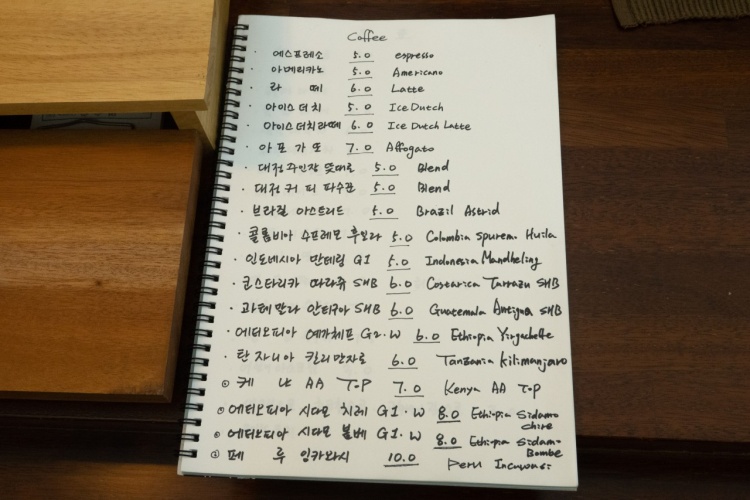 Coffee
· 에스프레소 5.0 espresso
· 아메리카노 5.0 Americano
· 라 떼 6.0 Latte
· 아이스더치 5.0 Ice Dutch
· 아이스더치라떼 6.0 Ice Dutch Latte
· 아포가또 7.0 Affogato
· 대정주인장 뜻대로 5.0 Blend
· 대정커피파수꾼 5.0 Blend
· 브라질 아스트리드 5.0 Brazil Astrid
· 콜롬비아 수프레모 후일라 5.0 Colombia Spuremo Huila
· 인도네시아 만데링 G1 5.0 Indonesia Mandheling
· 코스타리카 따라쥬 SHB 6.0 Costarica Tarrazu SHB
· 과테말라 안티구아 SHB 6.0 Guatemala Antigua SHB
· 에티오피아 예가체프 G2·W 6.0 Ethiopia Yirgacheffe
· 탄자니아 킬리만자로 6.0 Tanzania Kilimanjaro
케 냐 AA TOP 7.0 Kenya AA TOP
에티오피아 시다모 치레 G1·W 8.0 Ethiopia Sidamo Chire
에티오피아 시다모 봄베 G1·W 8.0 Ethiopia Sidamo Bombe
페 루 잉카와시 10.0 Peru Incawasi